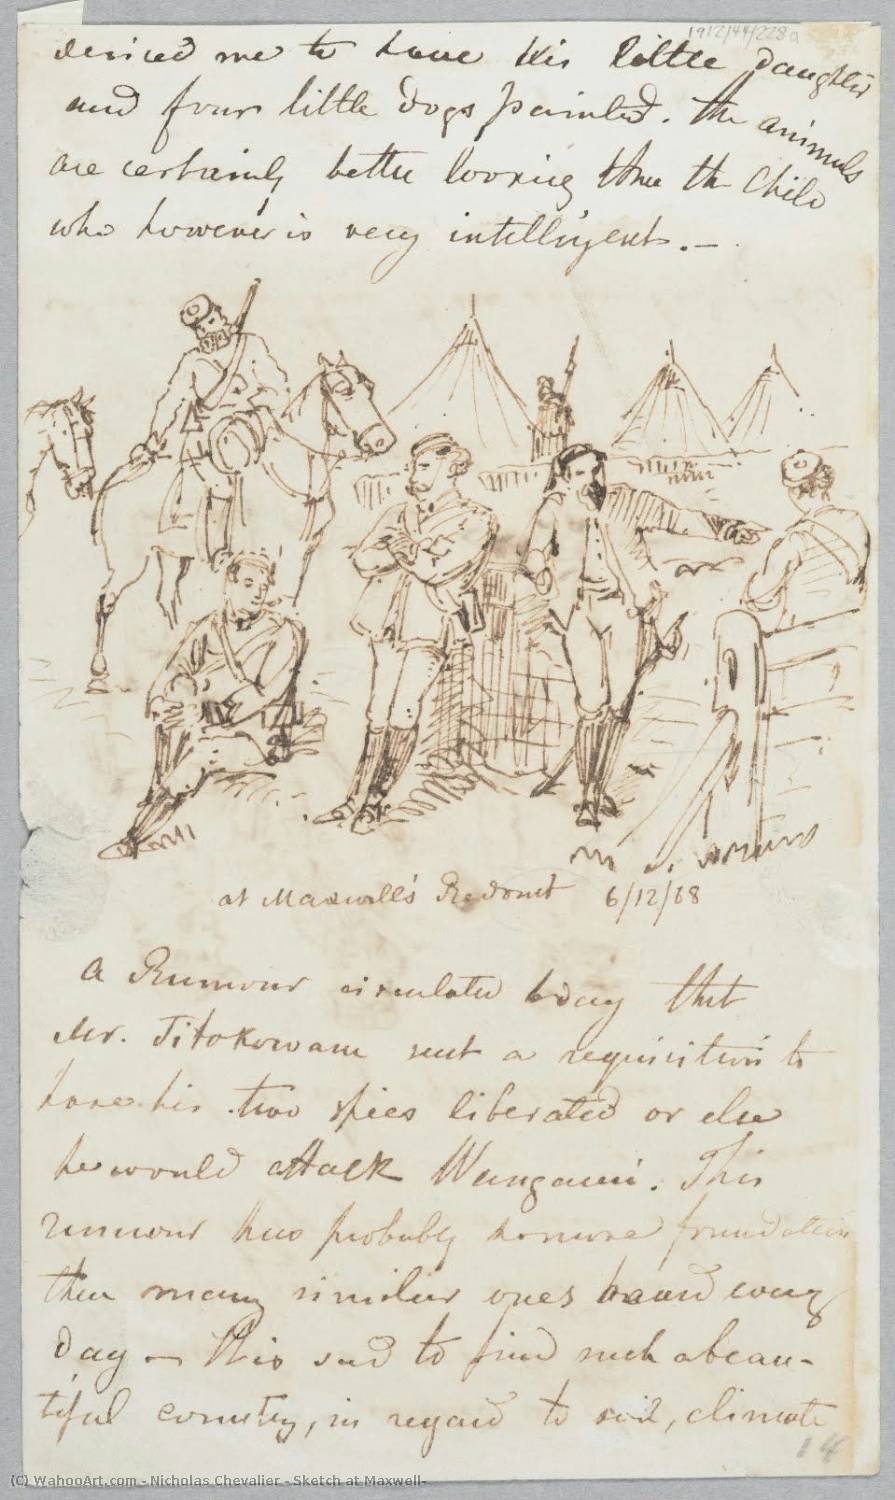 1912/44/228a
desired me to have his little daughter
and four little dogs painted. The animals
are certainly better looking than the Child
who however is very intelligent. —
at Maxwell's Redoubt 6/12/68
A Rumour circulated today that
Mr. Titokowaru sent a requisition to
have his two spies liberated or else
he would attack Wanganui. This
rumour has probably no more foundation
than many similar ones heard every
day — It is sad to find such a beau-
tiful country, in regard to soil, climate
14
(C) WahooArt.com - Nicholas Chevalier - Sketch at Maxwell-